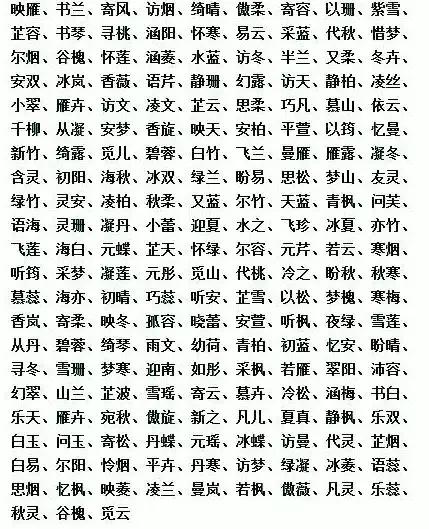 映雁、书兰、寄风、访烟、绮晴、傲柔、寄容、以珊、紫雪、
芷容、书琴、寻桃、涵阳、怀寒、易云、采蓝、代秋、惜梦、
尔烟、谷槐、怀莲、涵菱、水蓝、访冬、半兰、又柔、冬卉、
安双、冰岚、香薇、语芹、静珊、幻露、访天、静柏、凌丝、
小翠、雁卉、访文、凌文、芷云、思柔、巧凡、慕山、依云、
千柳、从凝、安梦、香旋、映天、安柏、平萱、以筠、忆曼、
新竹、绮露、觅儿、碧蓉、白竹、飞兰、曼雁、雁露、凝冬、
含灵、初阳、海秋、冰双、绿兰、盼易、思松、梦山、友灵、
绿竹、灵安、凌柏、秋柔、又蓝、尔竹、天蓝、青枫、问芙、
语海、灵珊、凝丹、小蕾、迎夏、水之、飞珍、冰夏、亦竹、
飞莲、海白、元蝶、芷天、怀绿、尔容、元芹、若云、寒烟、
听筠、采梦、凝莲、元彤、觅山、代桃、冷之、盼秋、秋寒、
慕蕊、海亦、初晴、巧蕊、听安、芷雪、以松、梦槐、寒梅、
香岚、寄柔、映冬、孤容、晓蕾、安萱、听枫、夜绿、雪莲、
从丹、碧蓉、绮琴、雨文、幼荷、青柏、初蓝、忆安、盼晴、
寻冬、雪珊、梦寒、迎南、如彤、采枫、若雁、翠阳、沛容、
幻翠、山兰、芷波、雪瑶、寄云、慕卉、冷松、涵梅、书白、
乐天、雁卉、宛秋、傲旋、新之、凡儿、夏真、静枫、乐双、
白玉、问玉、寄松、丹蝶、元瑶、冰蝶、访曼、代灵、芷烟、
白易、尔阳、怜烟、平卉、丹寒、访梦、绿凝、冰菱、语蕊、
思烟、忆枫、映菱、凌兰、曼岚、若枫、傲薇、凡灵、乐蕊、
秋灵、谷槐、觅云